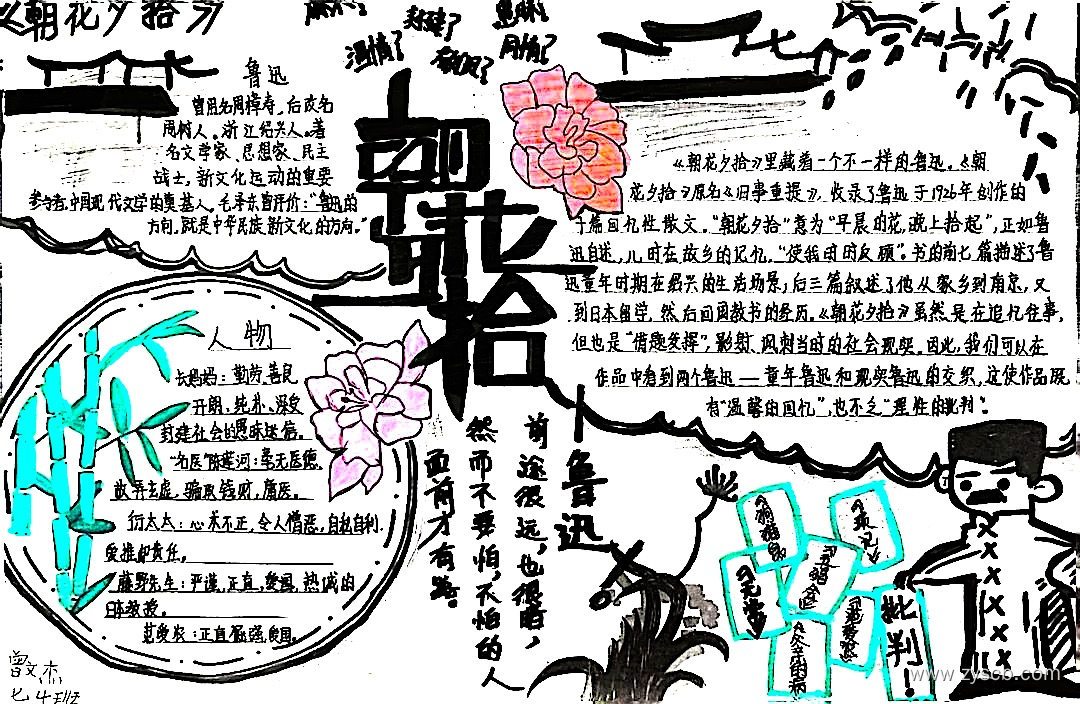 《朝花夕拾》
封建？
温情？
鲁迅
曾用名周樟寿，后改名
周树人。浙江绍兴人。著
名文学家、思想家、民主
战士，新文化运动的重要
参与者，中国现代文学的奠基人。毛泽东曾评价："鲁迅的
方向，就是中华民族新文化的方向。"
朝花夕拾
《朝花夕拾》里藏着一个不一样的鲁迅。《朝
花夕拾》原名《旧事重提》，收录了鲁迅于1926年创作的
十篇回忆性散文。"朝花夕拾"意为"早晨的花，晚上拾起"，正如鲁
迅自述，儿时在故乡的记忆，"使我时时反顾"。书的前七篇描述了鲁
迅童年时期在绍兴的生活场景，后三篇叙述了他从家乡到南京，又
到日本留学，然后回国教书的经历。《朝花夕拾》虽然是在追忆往事，
但也是"借题发挥"，影射、讽刺当时的社会现实。因此，我们可以在
作品中看到两个鲁迅——童年鲁迅和现实鲁迅的交织，这使作品既
有"温馨的回忆"，也不乏"理性的批判"。
人物
长妈妈：勤劳、善良
开朗、纯朴、深受
封建社会的愚昧迷信。
"名医"陈莲河：毫无医德、
故弄玄虚、骗取钱财，庸医。
衍太太：心术不正，令人憎恶，自私自利，
爱推卸责任。
藤野先生：严谨，正直，爱国，热诚的
日本教授。
范爱农：正直倔强，爱国。
前途很远，也很暗，
然而不要怕，不怕的人
面前才有路。
——鲁迅
《无常》
批判！
曾文杰
www.zyscb.com